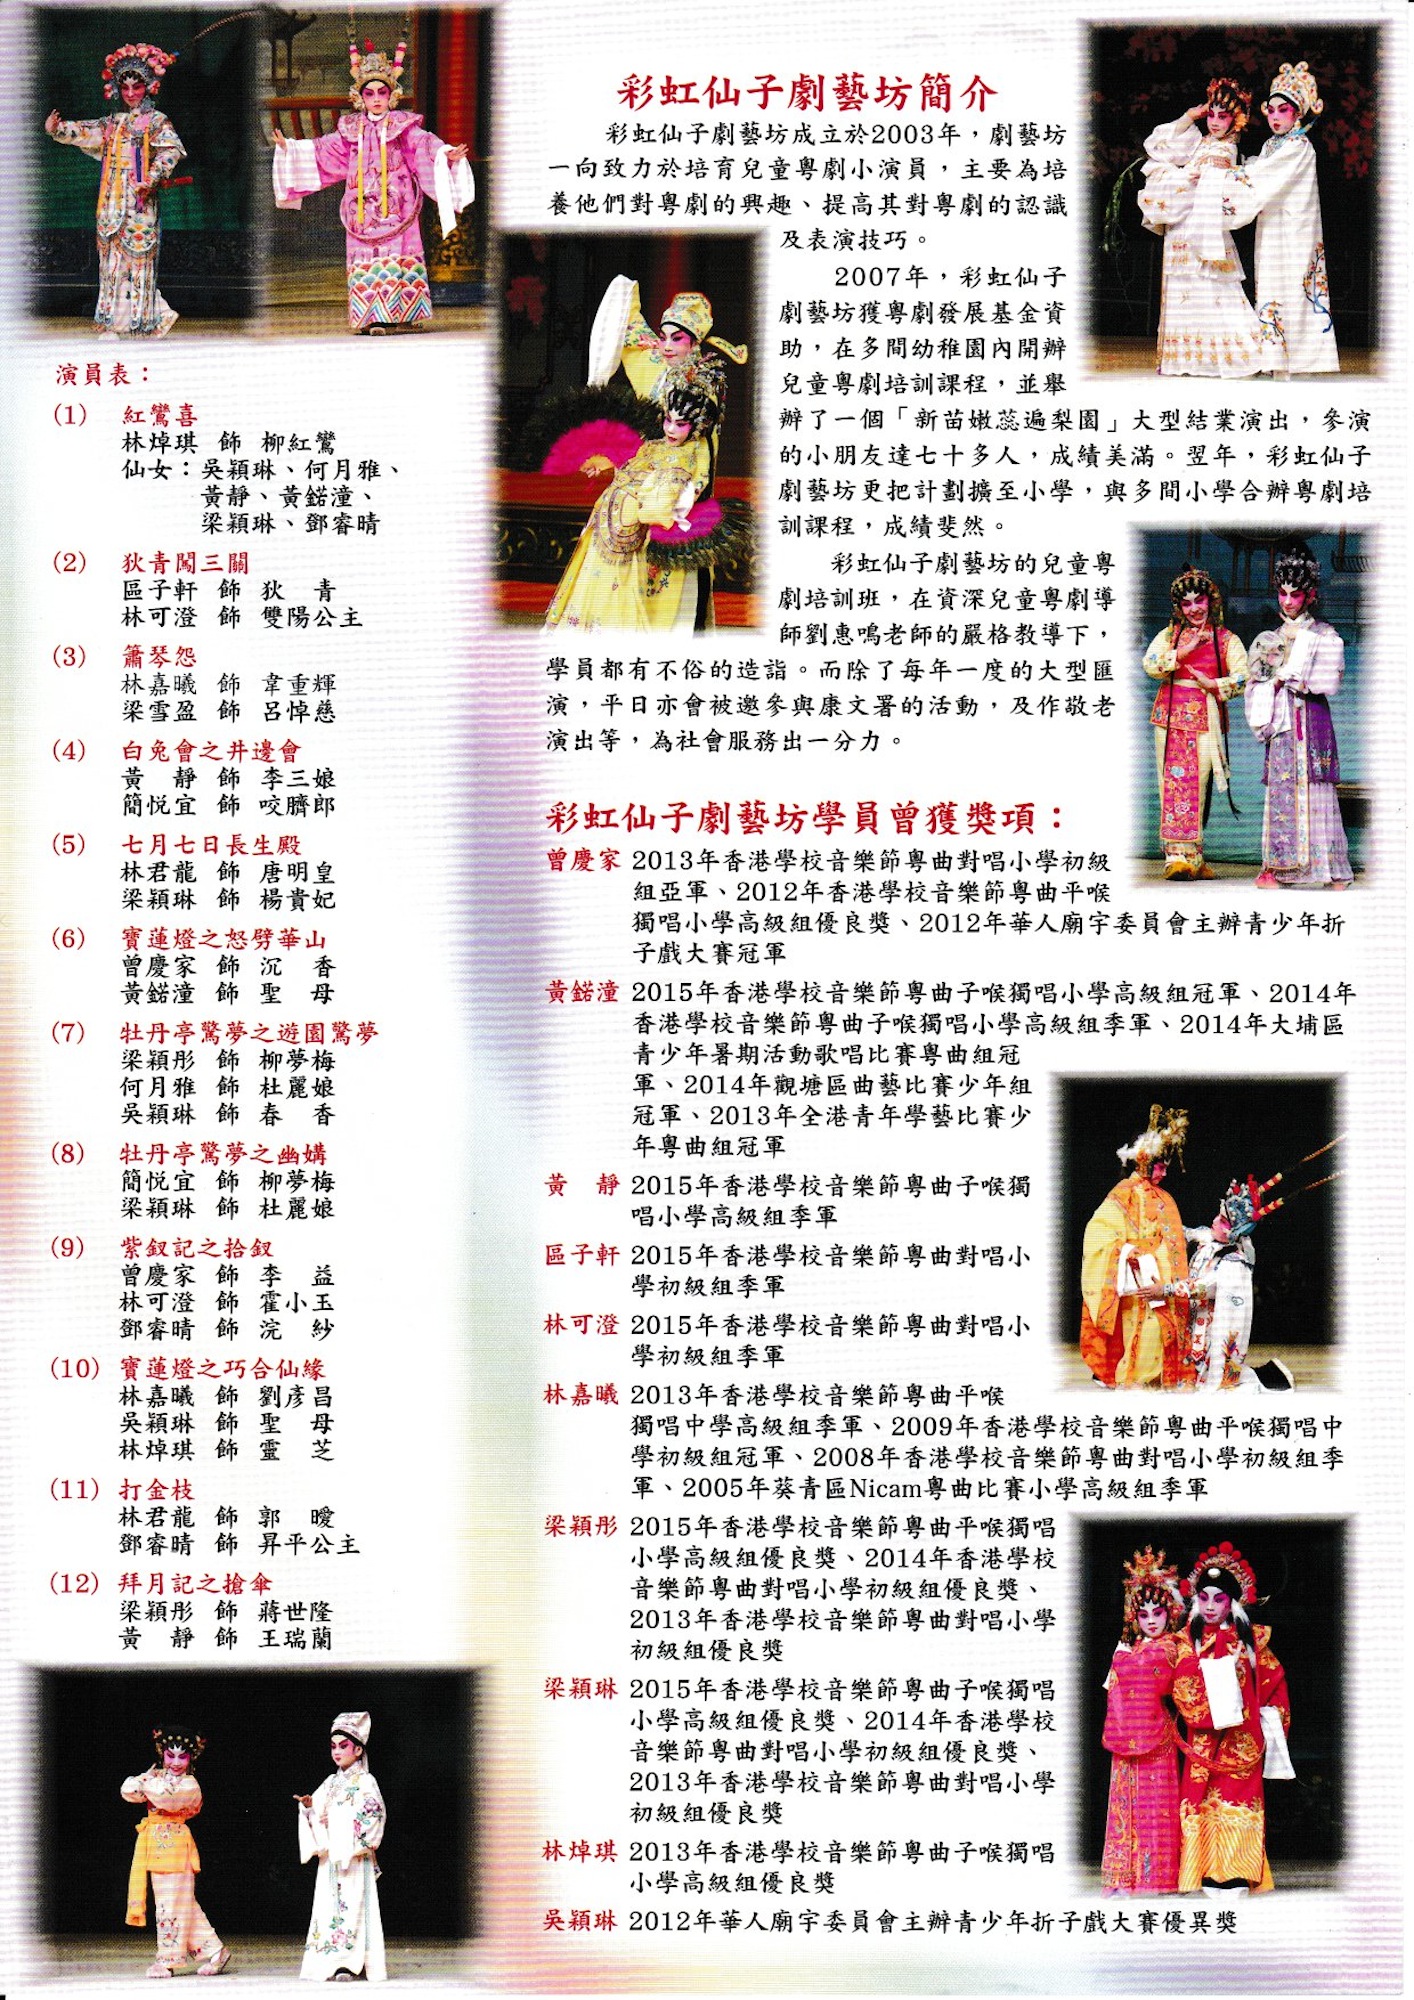 演員表：
(1) 紅鸞喜
林焯琪 飾 柳紅鸞
仙女：吳穎琳、何月雅、
黃靜、黃鍩潼、
梁穎琳、鄧睿晴
(2) 狄青闖三關
區子軒 飾 狄　青
林可澄 飾 雙陽公主
(3) 簫琴怨
林嘉曦 飾 韋重輝
梁雪盈 飾 呂悼慈
(4) 白兔會之井邊會
黃　靜 飾 李三娘
簡悦宜 飾 咬臍郎
(5) 七月七日長生殿
林君龍 飾 唐明皇
梁穎琳 飾 楊貴妃
(6) 寶蓮燈之怒劈華山
曾慶家 飾 沉　香
黃鍩潼 飾 聖　母
(7) 牡丹亭驚夢之遊園驚夢
梁穎彤 飾 柳夢梅
何月雅 飾 杜麗娘
吳穎琳 飾 春　香
(8) 牡丹亭驚夢之幽媾
簡悦宜 飾 柳夢梅
梁穎琳 飾 杜麗娘
(9) 紫釵記之拾釵
曾慶家 飾 李　益
林可澄 飾 霍小玉
鄧睿晴 飾 浣　紗
(10) 寶蓮燈之巧合仙緣
林嘉曦 飾 劉彥昌
吳穎琳 飾 聖　母
林焯琪 飾 靈　芝
(11) 打金枝
林君龍 飾 郭　曖
鄧睿晴 飾 昇平公主
(12) 拜月記之搶傘
梁穎彤 飾 蔣世隆
黃　靜 飾 王瑞蘭
彩虹仙子劇藝坊簡介
彩虹仙子劇藝坊成立於2003年，劇藝坊
一向致力於培育兒童粵劇小演員，主要為培
養他們對粵劇的興趣、提高其對粵劇的認識
及表演技巧。
2007年，彩虹仙子
劇藝坊獲粵劇發展基金資
助，在多間幼稚園內開辦
兒童粵劇培訓課程，並舉
辦了一個「新苗嫩蕊遍梨園」大型結業演出，參演
的小朋友達七十多人，成績美滿。翌年，彩虹仙子
劇藝坊更把計劃擴至小學，與多間小學合辦粵劇培
訓課程，成績斐然。
彩虹仙子劇藝坊的兒童粵
劇培訓班，在資深兒童粵劇導
師劉惠鳴老師的嚴格教導下，
學員都有不俗的造詣。而除了每年一度的大型匯
演，平日亦會被邀參與康文署的活動，及作敬老
演出等，為社會服務出一分力。
彩虹仙子劇藝坊學員曾獲獎項：
曾慶家 2013年香港學校音樂節粵曲對唱小學初級
組亞軍、2012年香港學校音樂節粵曲平喉
獨唱小學高級組優良獎、2012年華人廟宇委員會主辦青少年折
子戲大賽冠軍
黃鍩潼 2015年香港學校音樂節粵曲子喉獨唱小學高級組冠軍、2014年
香港學校音樂節粵曲子喉獨唱小學高級組季軍、2014年大埔區
青少年暑期活動歌唱比賽粵曲組冠
軍、2014年觀塘區曲藝比賽少年組
冠軍、2013年全港青年學藝比賽少
年粵曲組冠軍
黃　靜 2015年香港學校音樂節粵曲子喉獨
唱小學高級組季軍
區子軒 2015年香港學校音樂節粵曲對唱小
學初級組季軍
林可澄 2015年香港學校音樂節粵曲對唱小
學初級組季軍
林嘉曦 2013年香港學校音樂節粵曲平喉
獨唱中學高級組季軍、2009年香港學校音樂節粵曲平喉獨唱中
學初級組冠軍、2008年香港學校音樂節粵曲對唱小學初級組季
軍、2005年葵青區Nicam粵曲比賽小學高級組季軍
梁穎彤 2015年香港學校音樂節粵曲平喉獨唱
小學高級組優良獎、2014年香港學校
音樂節粵曲對唱小學初級組優良獎、
2013年香港學校音樂節粵曲對唱小學
初級組優良獎
梁穎琳 2015年香港學校音樂節粵曲子喉獨唱
小學高級組優良獎、2014年香港學校
音樂節粵曲對唱小學初級組優良獎、
2013年香港學校音樂節粵曲對唱小學
初級組優良獎
林焯琪 2013年香港學校音樂節粵曲子喉獨唱
小學高級組優良獎
吳穎琳 2012年華人廟宇委員會主辦青少年折子戲大賽優異獎